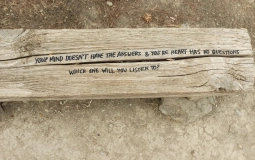 YOUR MIND DOESN'T HAVE THE ANSWERS & YOUR HEART HAS NO QUESTIONS
WHICH ONE WILL YOU LISTEN TO?